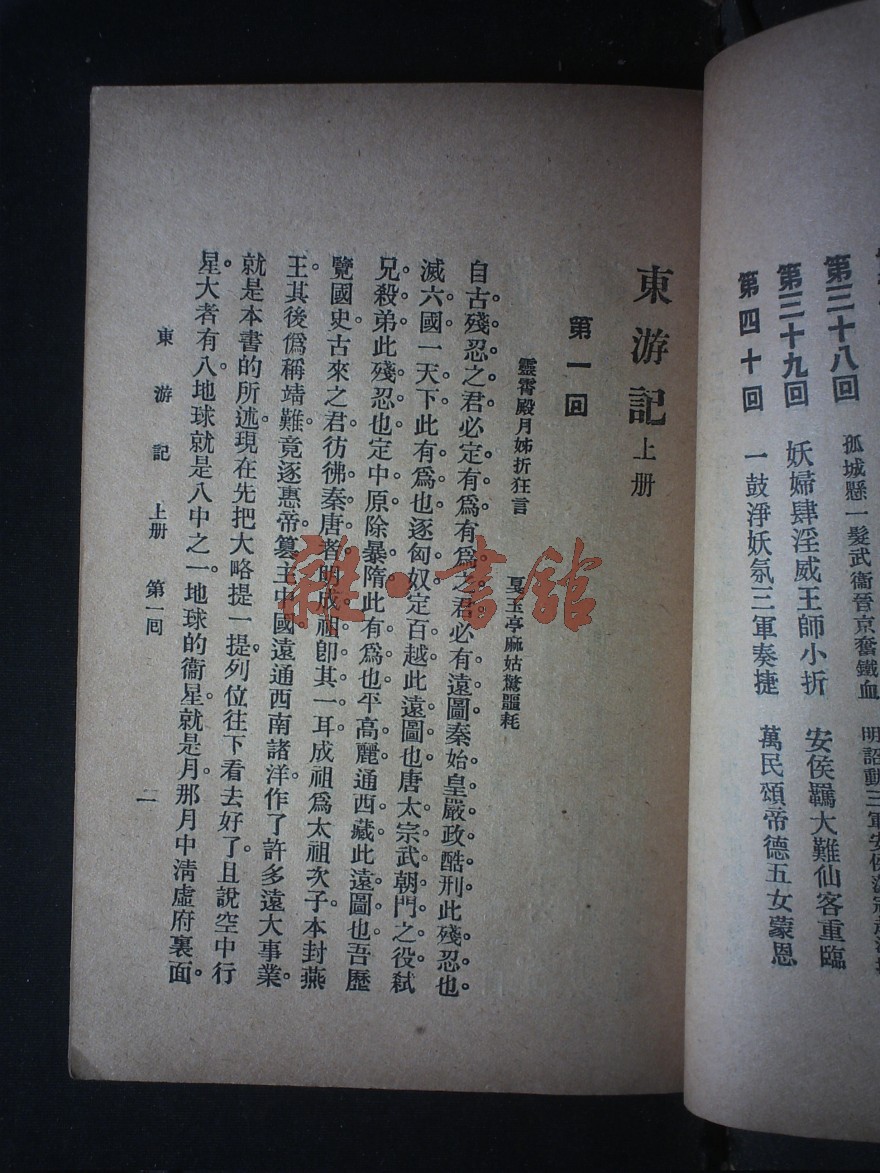 第三十八回 孤城懸一髮武衞晉京奮鐵血 明詔動三軍安侯
第三十九回 妖婦肆淫威王師小折 安侯羈大難仙客重臨
第四十回 一鼓淨妖氛三軍奏捷 萬民頌帝德五女蒙恩
東游記 上册
第一回
靈霄殿月姊折狂言 戛玉亭麻姑驚噩耗
自古殘忍之君必定有爲有爲之君必有遠圖秦始皇嚴政酷刑此殘忍也。
滅六國一天下此有爲也逐匈奴定百越此遠圖也唐太宗武朝門之役弑
兄殺弟此殘忍也定中原除暴隋此有爲也平高麗通西藏此遠圖也吾歷
覽國史古來之君彷彿秦唐者明成祖卽其一耳。成祖爲太祖次子本封燕
王。其後僞稱靖難。竟逐惠帝。篡主中國。遠通西南諸洋。作了許多遠大事業。
就是本書的所述。現在先把大略提一提。列位往下看去好了。且說空中行
星。大者有八。地球就是八中之一。地球的衞星就是月。那月中清虛府裏面。
東游記 上册 第一回 二
雜·書館